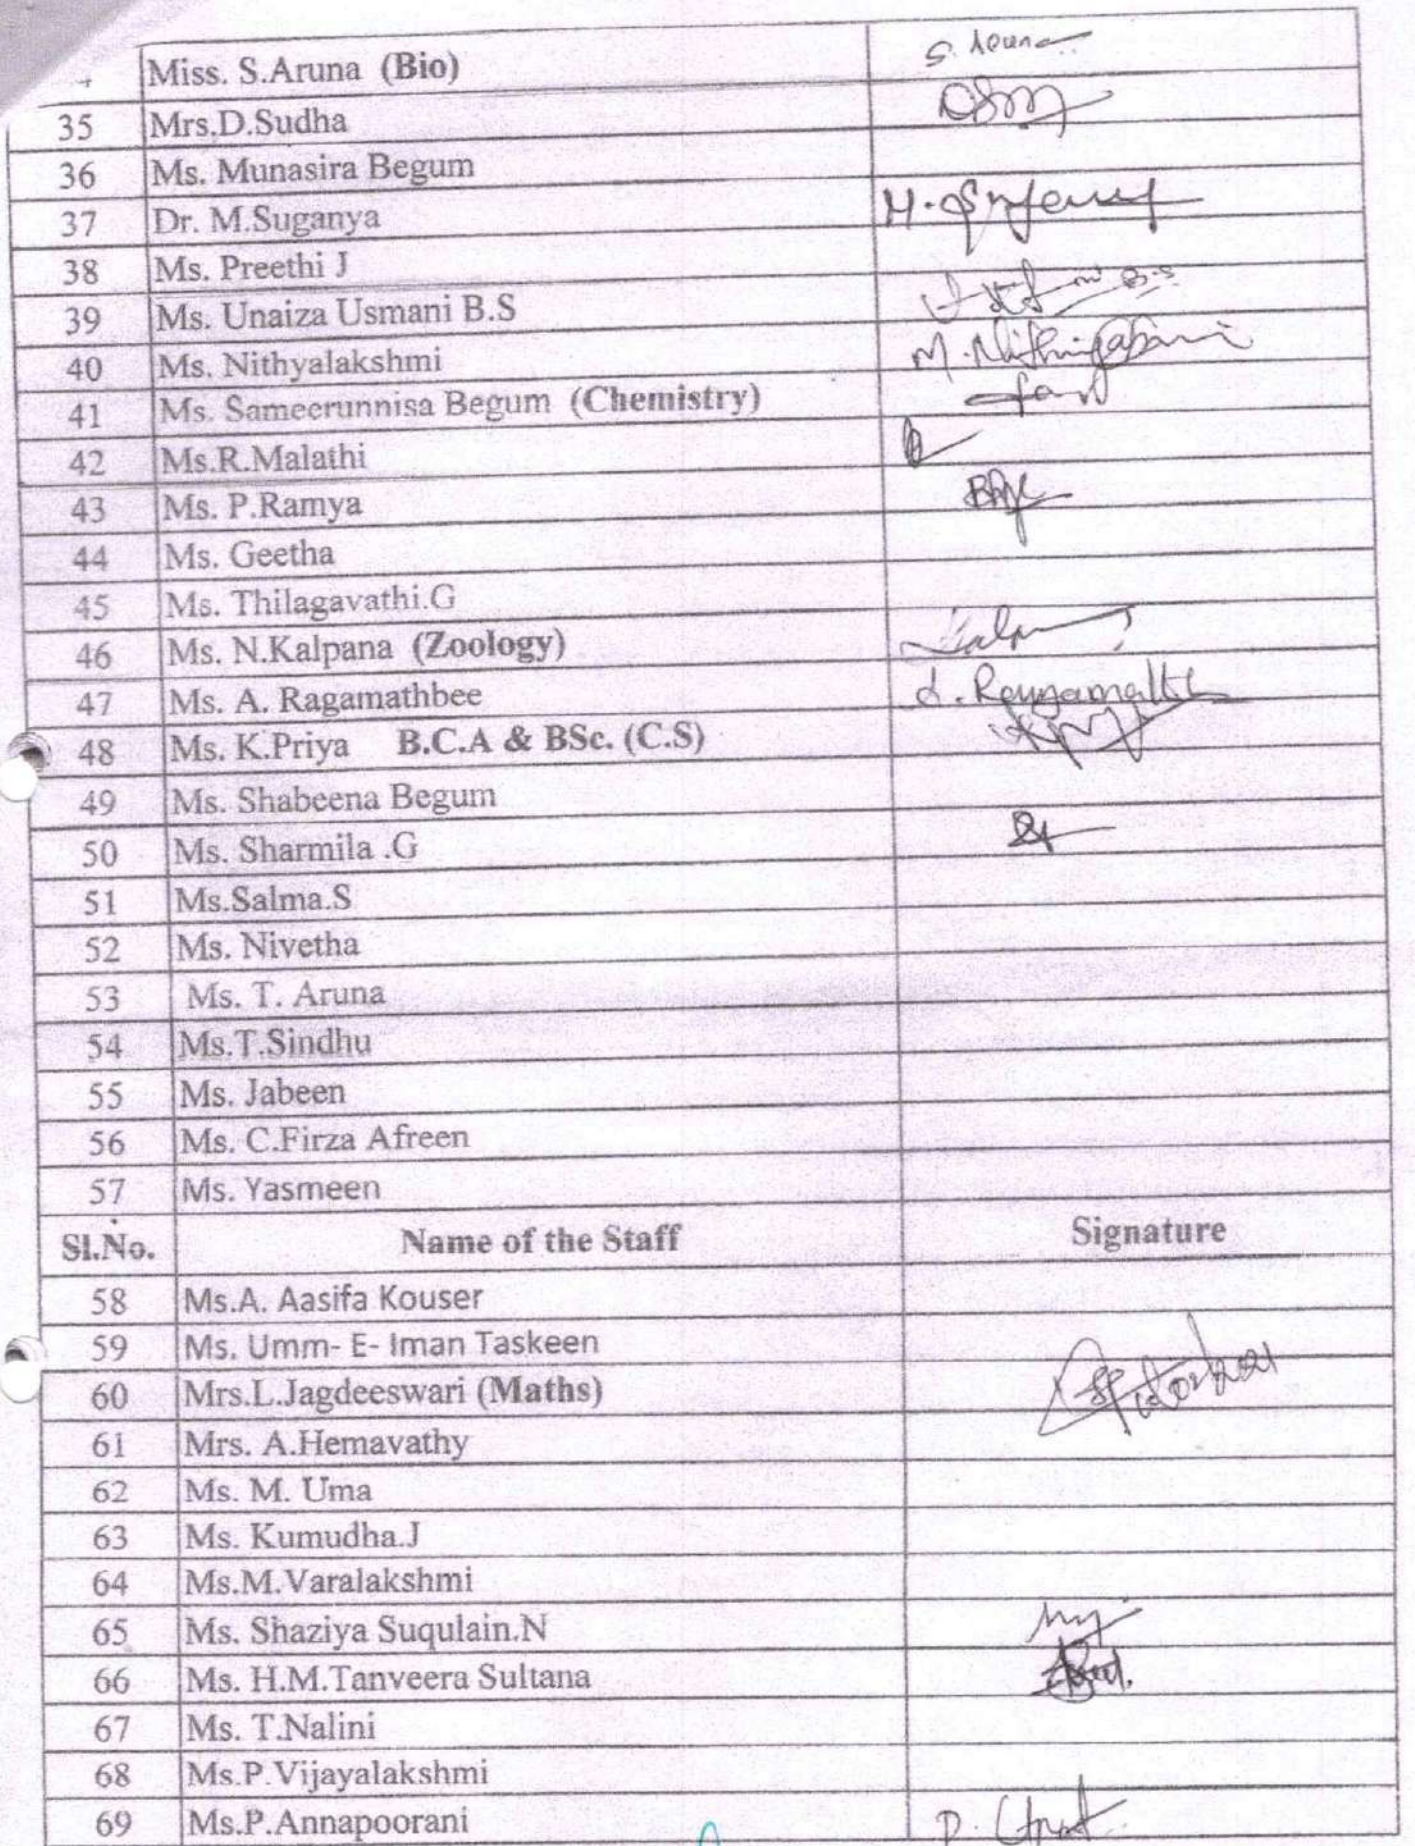 Miss. S.Aruna (Bio) S. Aruna
35 Mrs.D.Sudha
36 Ms. Munasira Begum
37 Dr. M.Suganya
38 Ms. Preethi J
39 Ms. Unaiza Usmani B.S
40 Ms. Nithyalakshmi
41 Ms. Sameerunnisa Begum (Chemistry)
42 Ms.R.Malathi
43 Ms. P.Ramya
44 Ms. Geetha
45 Ms. Thilagavathi.G
46 Ms. N.Kalpana (Zoology)
47 Ms. A. Ragamathbee
48 Ms. K.Priya B.C.A & BSc. (C.S)
49 Ms. Shabeena Begum
50 Ms. Sharmila .G
51 Ms.Salma.S
52 Ms. Nivetha
53 Ms. T. Aruna
54 Ms.T.Sindhu
55 Ms. Jabeen
56 Ms. C.Firza Afreen
57 Ms. Yasmeen
Sl.No. Name of the Staff Signature
58 Ms.A. Aasifa Kouser
59 Ms. Umm- E- Iman Taskeen
60 Mrs.L.Jagdeeswari (Maths)
61 Mrs. A.Hemavathy
62 Ms. M. Uma
63 Ms. Kumudha.J
64 Ms.M.Varalakshmi
65 Ms. Shaziya Suqulain.N
66 Ms. H.M.Tanveera Sultana
67 Ms. T.Nalini
68 Ms.P.Vijayalakshmi
69 Ms.P.Annapoorani